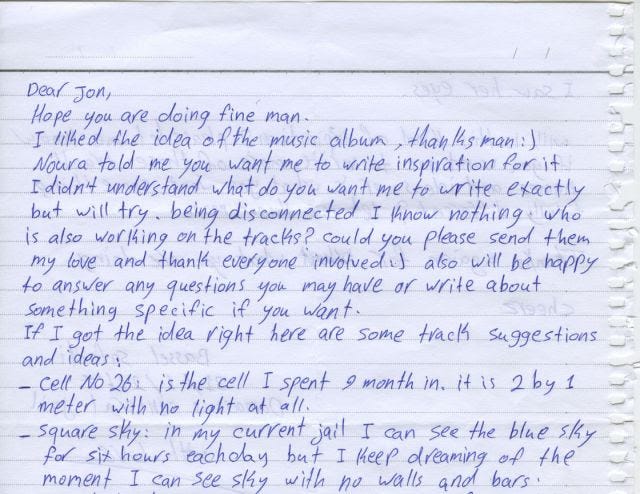 Dear Jon,
Hope you are doing fine man.
I liked the idea of the music album, thanks man :)
Noura told me you want me to write inspiration for it.
I didn't understand what do you want me to write exactly
but will try. being disconnected I know nothing, who
is also working on the tracks? could you please send them
my love and thank everyone involved :) also will be happy
to answer any questions you may have or write about
something specific if you want.
If I got the idea right here are some track suggestions
and ideas:
- cell No 26: is the cell I spent 9 month in. it is 2 by 1
meter with no light at all.
- square sky: in my current jail I can see the blue sky
for six hours eachday but I keep dreaming of the
moment I can see sky with no walls and bars.